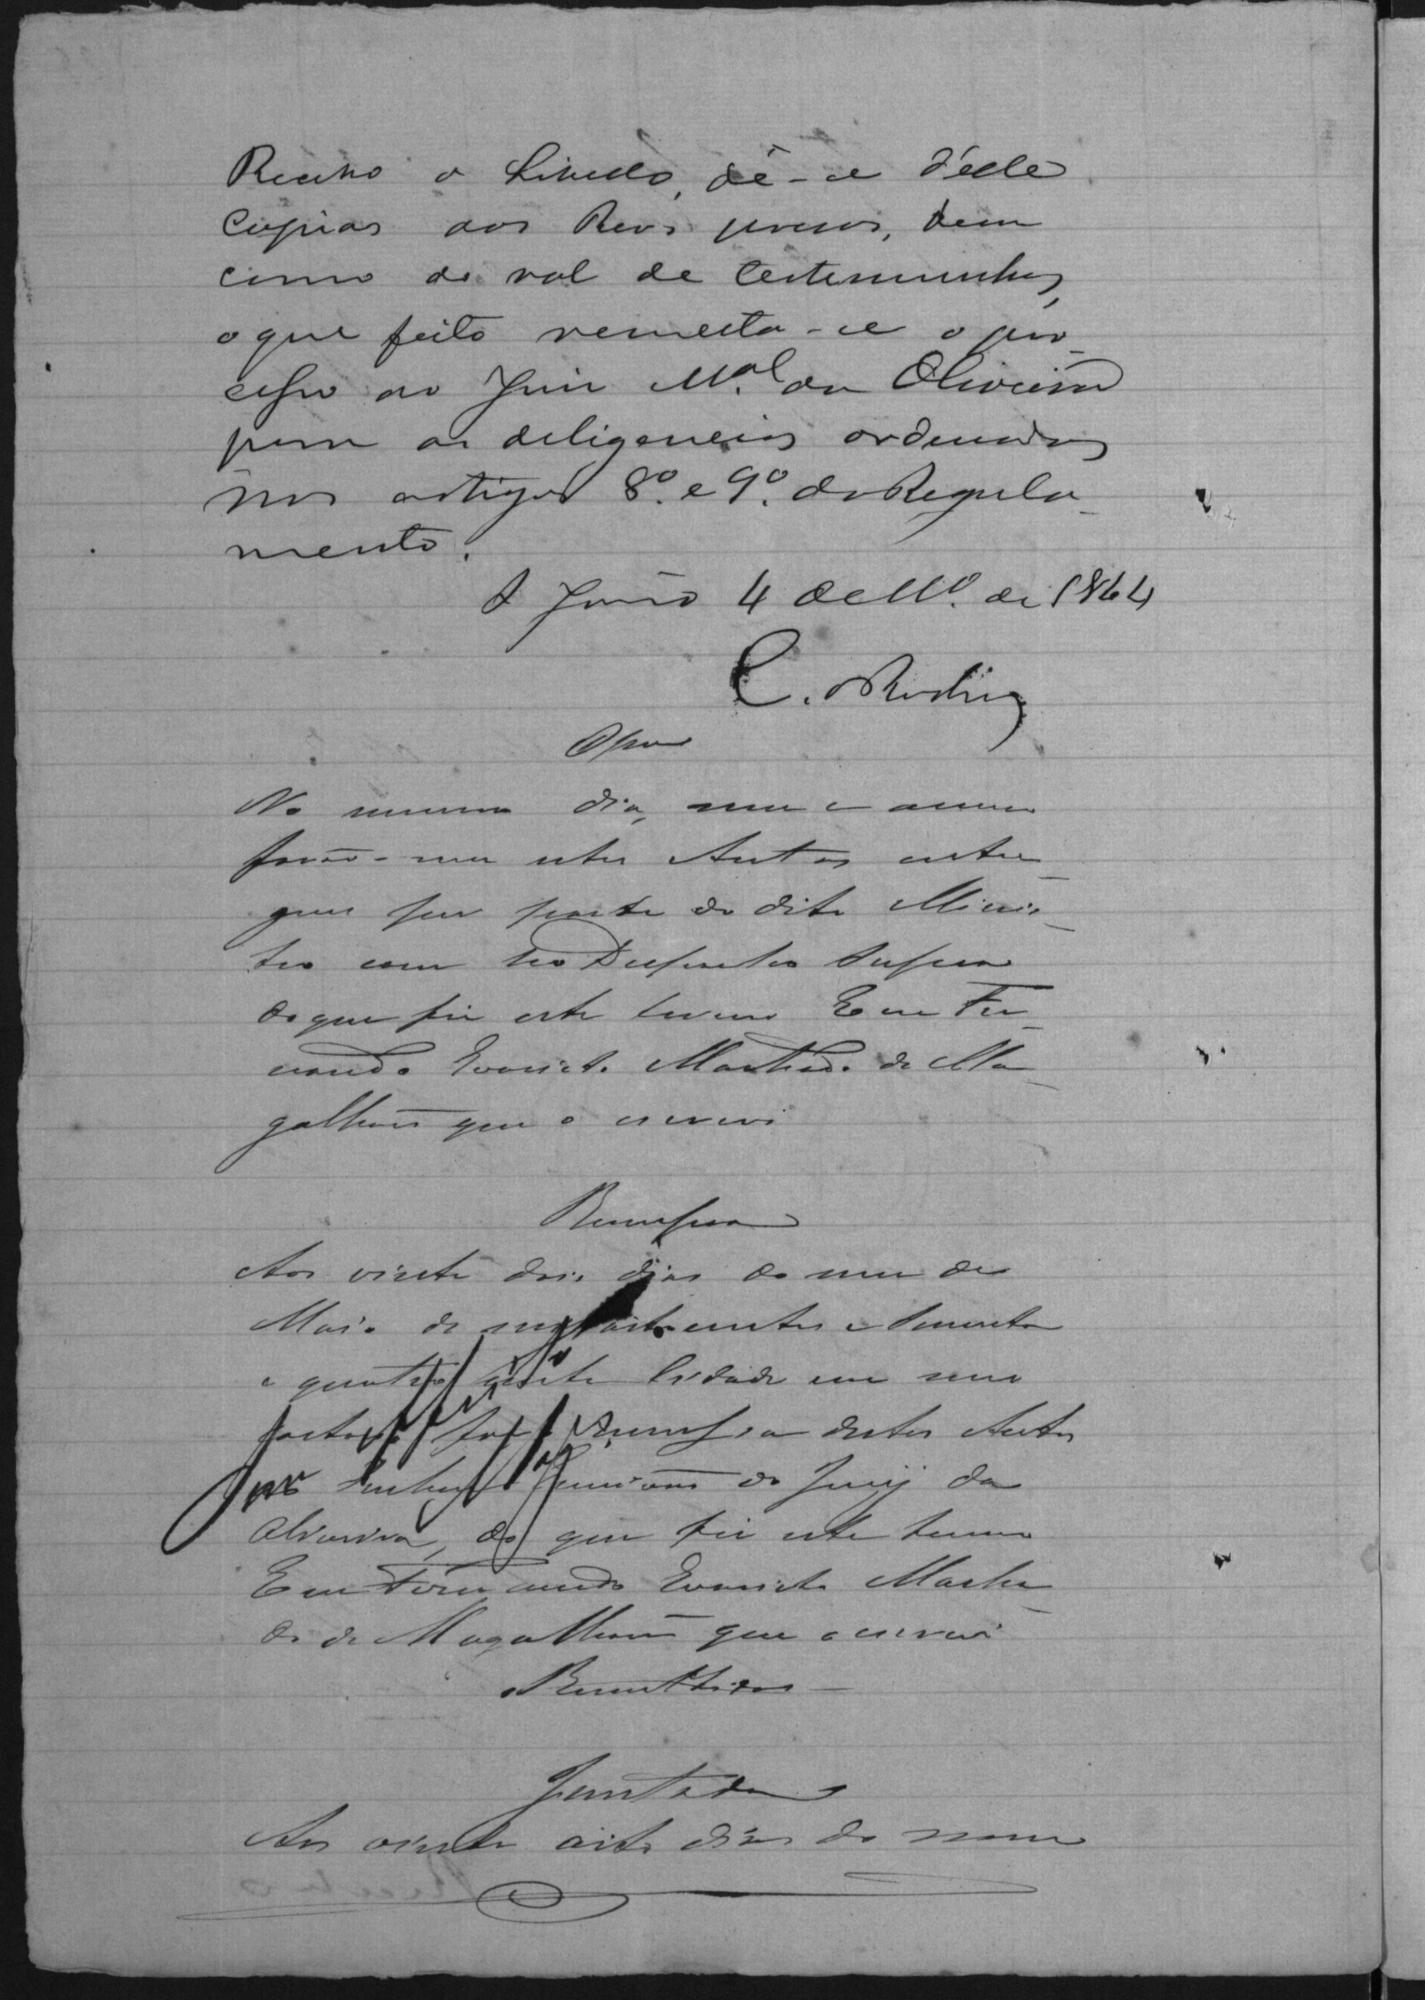 Recebo o Libello, dê-se d'elle
copias aos Reos presos, bem
como do rol de testemunhas,
o que feito remetta-se o pro-
cesso ao Juiz M.al da Oliveira
para as deligencias ordenadas
nos artigos 8.º e 9.º do Regula-
mento.
S João 4 de M.º de 1864
C. Rodrig
No mesmo dia, mes e anno
forão-me estes Autos entre-
gues por parte do dito Minis-
tro com seo Despacho supra
do que fiz este termo Eu Fer-
nando Evaristo Machado de Ma-
galhães que o escrevi
Remessa
Aos vinte dois dias do mes de
Maio de mil oito centos e secenta
e quatro nesta Cidade em meo
Cartorio faço remessa destes Autos
do Jury da
Oliveira, do que fiz este termo
Eu Fernando Evaristo Macha-
do de Magalhães que o escrevi
Remettidos
Juntada
Aos vinte oito dias do mes